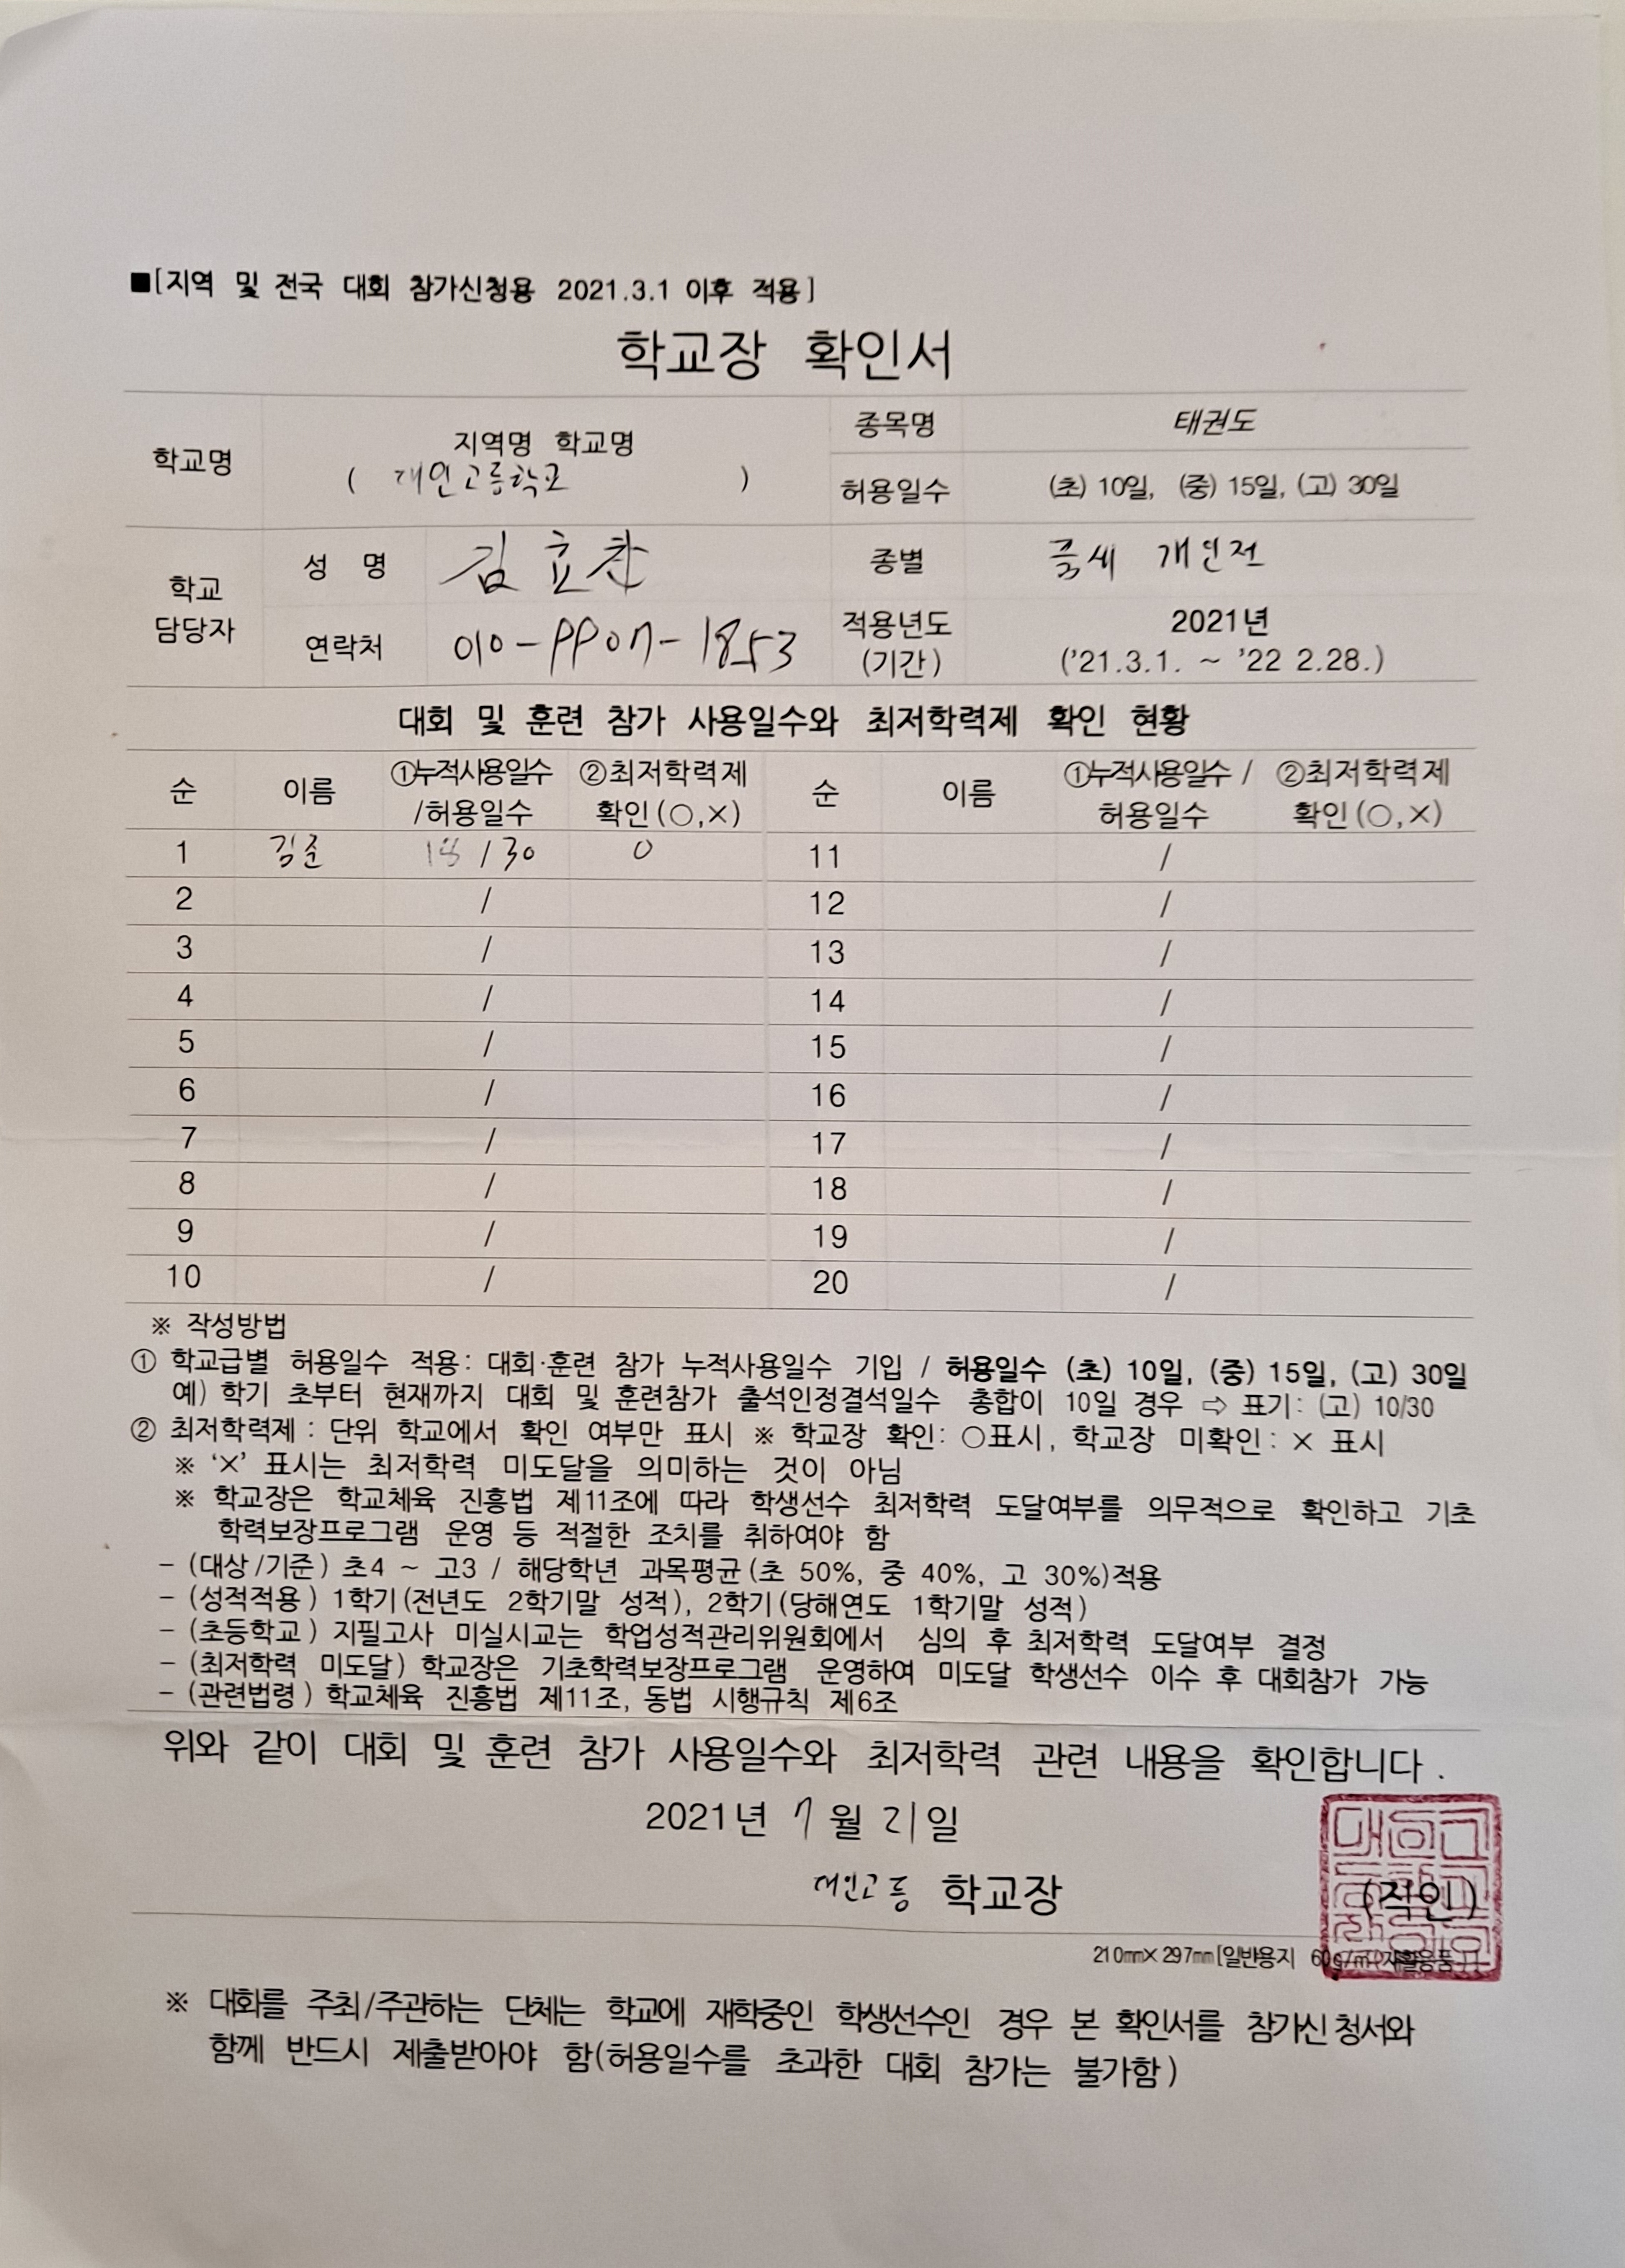 ■[지역 및 전국 대회 참가신청용 2021.3.1 이후 적용]
학교장 확인서
학교명
지역명 학교명
( 대인고등학교 )
종목명 태권도
허용일수 (초) 10일, (중) 15일, (고) 30일
학교
담당자
성 명 김효찬
종별 품새 개인전
연락처 010-9907-1853
적용년도
(기간)
2021년
('21.3.1. ~ '22 2.28.)
대회 및 훈련 참가 사용일수와 최저학력제 확인 현황
순 이름 ①누적사용일수
/허용일수
②최저학력제
확인(○,×)
순 이름 ①누적사용일수 /
허용일수
②최저학력제
확인(○,×)
1 김준 18 / 30 O 11 /
2 / 12 /
3 / 13 /
4 / 14 /
5 / 15 /
6 / 16 /
7 / 17 /
8 / 18 /
9 / 19 /
10 / 20 /
※ 작성방법
① 학교급별 허용일수 적용: 대회·훈련 참가 누적사용일수 기입 / 허용일수 (초) 10일, (중) 15일, (고) 30일
예) 학기 초부터 현재까지 대회 및 훈련참가 출석인정결석일수 총합이 10일 경우 ⇨ 표기: (고) 10/30
② 최저학력제 : 단위 학교에서 확인 여부만 표시 ※ 학교장 확인: ○표시, 학교장 미확인: × 표시
※ '×' 표시는 최저학력 미도달을 의미하는 것이 아님
※ 학교장은 학교체육 진흥법 제11조에 따라 학생선수 최저학력 도달여부를 의무적으로 확인하고 기초
학력보장프로그램 운영 등 적절한 조치를 취하여야 함
- (대상/기준) 초4 ~ 고3 / 해당학년 과목평균(초 50%, 중 40%, 고 30%)적용
- (성적적용) 1학기(전년도 2학기말 성적), 2학기(당해연도 1학기말 성적)
- (초등학교) 지필고사 미실시교는 학업성적관리위원회에서 심의 후 최저학력 도달여부 결정
- (최저학력 미도달) 학교장은 기초학력보장프로그램 운영하여 미도달 학생선수 이수 후 대회참가 가능
- (관련법령) 학교체육 진흥법 제11조, 동법 시행규칙 제6조
위와 같이 대회 및 훈련 참가 사용일수와 최저학력 관련 내용을 확인합니다.
2021년 7월 21일
대인고등 학교장 (직인)
210㎜×297㎜[일반용지 60g/㎡(재활용품)]
※ 대회를 주최/주관하는 단체는 학교에 재학중인 학생선수인 경우 본 확인서를 참가신청서와
함께 반드시 제출받아야 함(허용일수를 초과한 대회 참가는 불가함)